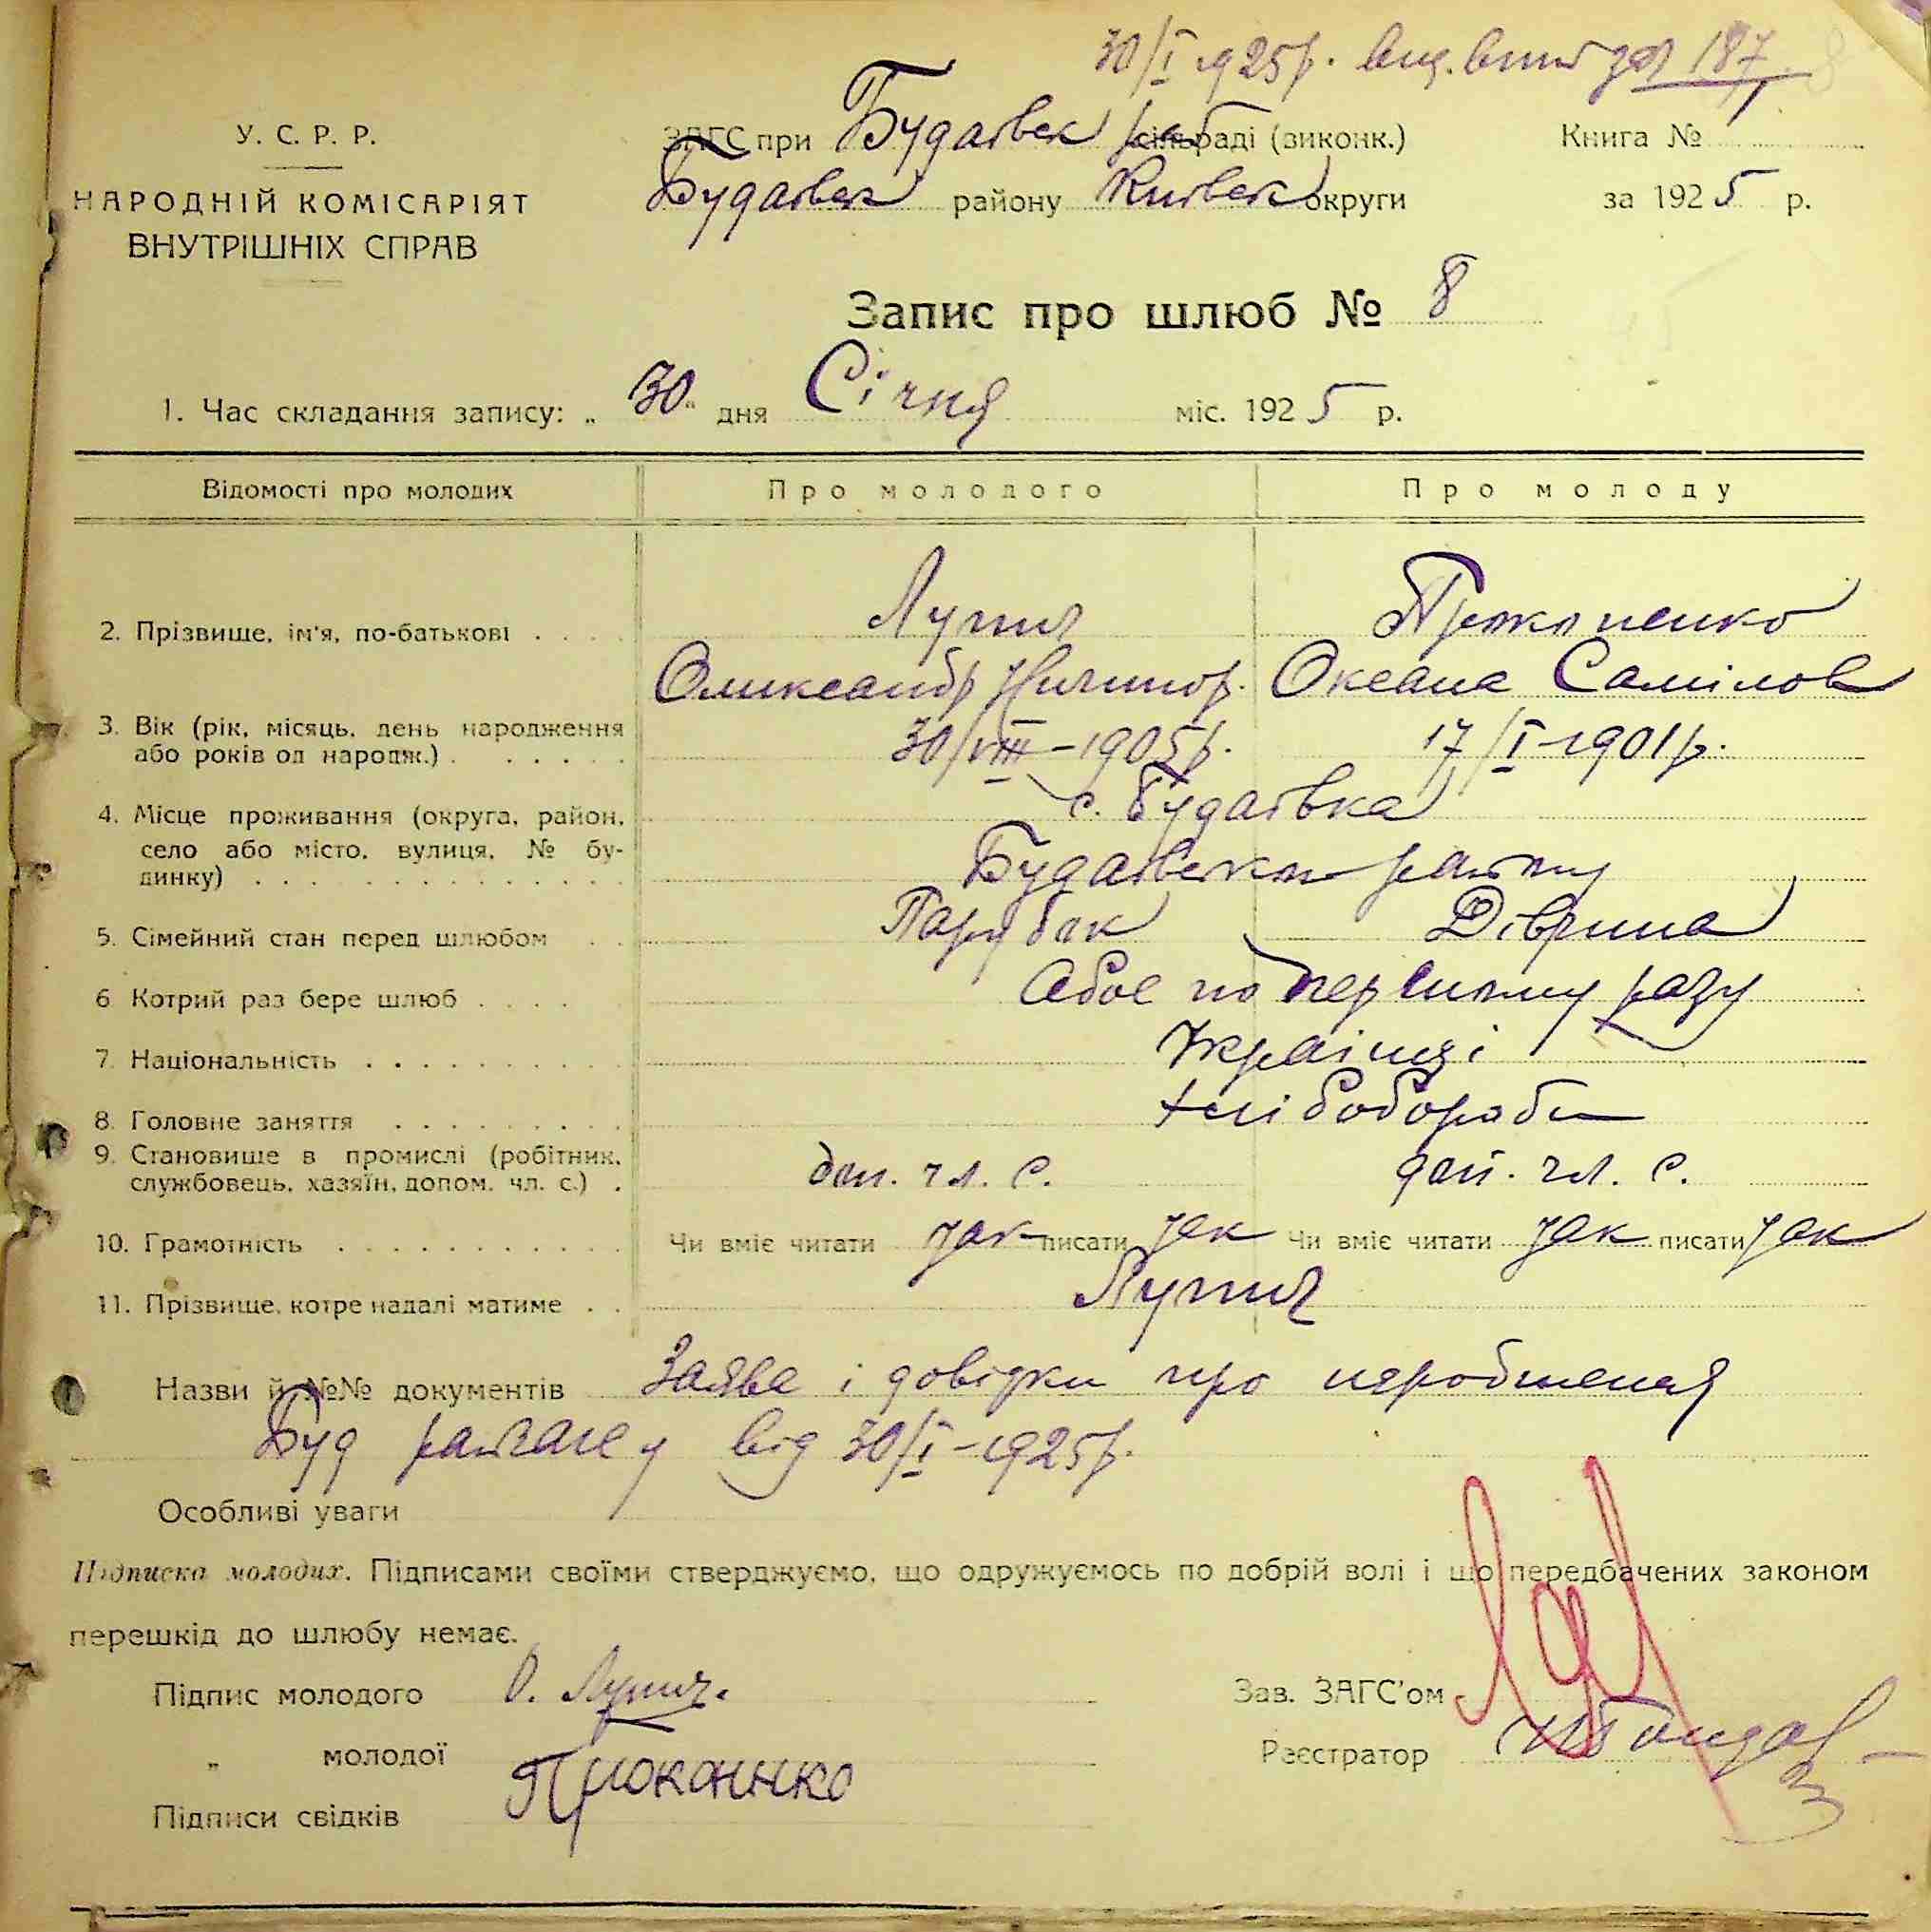 30/I 1925р. вид. витяг за 187
У. С. Р. Р.
ЗАГС при Будаївск рай сільраді (виконк.) Книга №
НАРОДНІЙ КОМІСАРІЯТ
ВНУТРІШНІХ СПРАВ
Будаївск району Київськ округи за 1925 р.
Запис про шлюб № 8
1. Час складання запису: „ 30 " дня Січня міс. 1925 р.
Відомості про молодих Про молодого Про молоду
2. Прізвище, ім'я, по-батькові . . . . Лупич Прокопенко
Олександр Ничипор. Оксана Самілов
3. Вік (рік, місяць, день народження
або років од народж.) . . . . . . 30/VIII-1905р. 17/I-1901р.
4. Місце проживання (округа, район, с. Будаївка
село або місто, вулиця, № бу-
динку) . . . . . . . . . . . . . . Будаївського району
5. Сімейний стан перед шлюбом . . Парубак Дівчина
6. Котрий раз бере шлюб . . . . Обоє по первшому разу
7. Національність . . . . . . . . . . Українці
8. Головне заняття . . . . . . . . . хліборобо
9. Становище в промислі (робітник,
службовець, хазяїн, допом. чл. с.) . доп. чл. с. доп. чл. с.
10. Грамотність . . . . . . . . . . . Чи вміє читати так писати так Чи вміє читати так писати так
11. Прізвище, котре надалі матиме . . Лупич
Назви й №№ документів Заява і довідки про народження
Буд райзагсу від 30/I-1925р.
Особливі уваги
Підписка молодих. Підписами своїми стверджуємо, що одружуємось по добрій волі і що передбачених законом
перешкід до шлюбу немає.
Підпис молодого О. Лупич. Зав. ЗАГС'ом
„ молодої Прокопнко Реєстратор
Підписи свідків